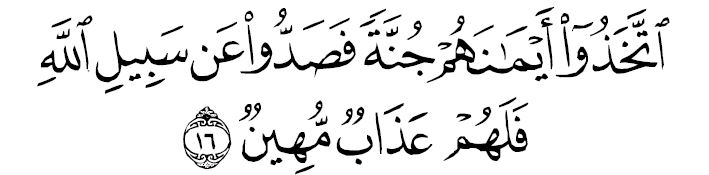 ٱتَّخَذُوٓا۟ أَيْمَـٰنَهُمْ جُنَّةً فَصَدُّوا۟ عَن سَبِيلِ ٱللَّهِ
فَلَهُمْ عَذَابٌ مُّهِينٌ ١٦